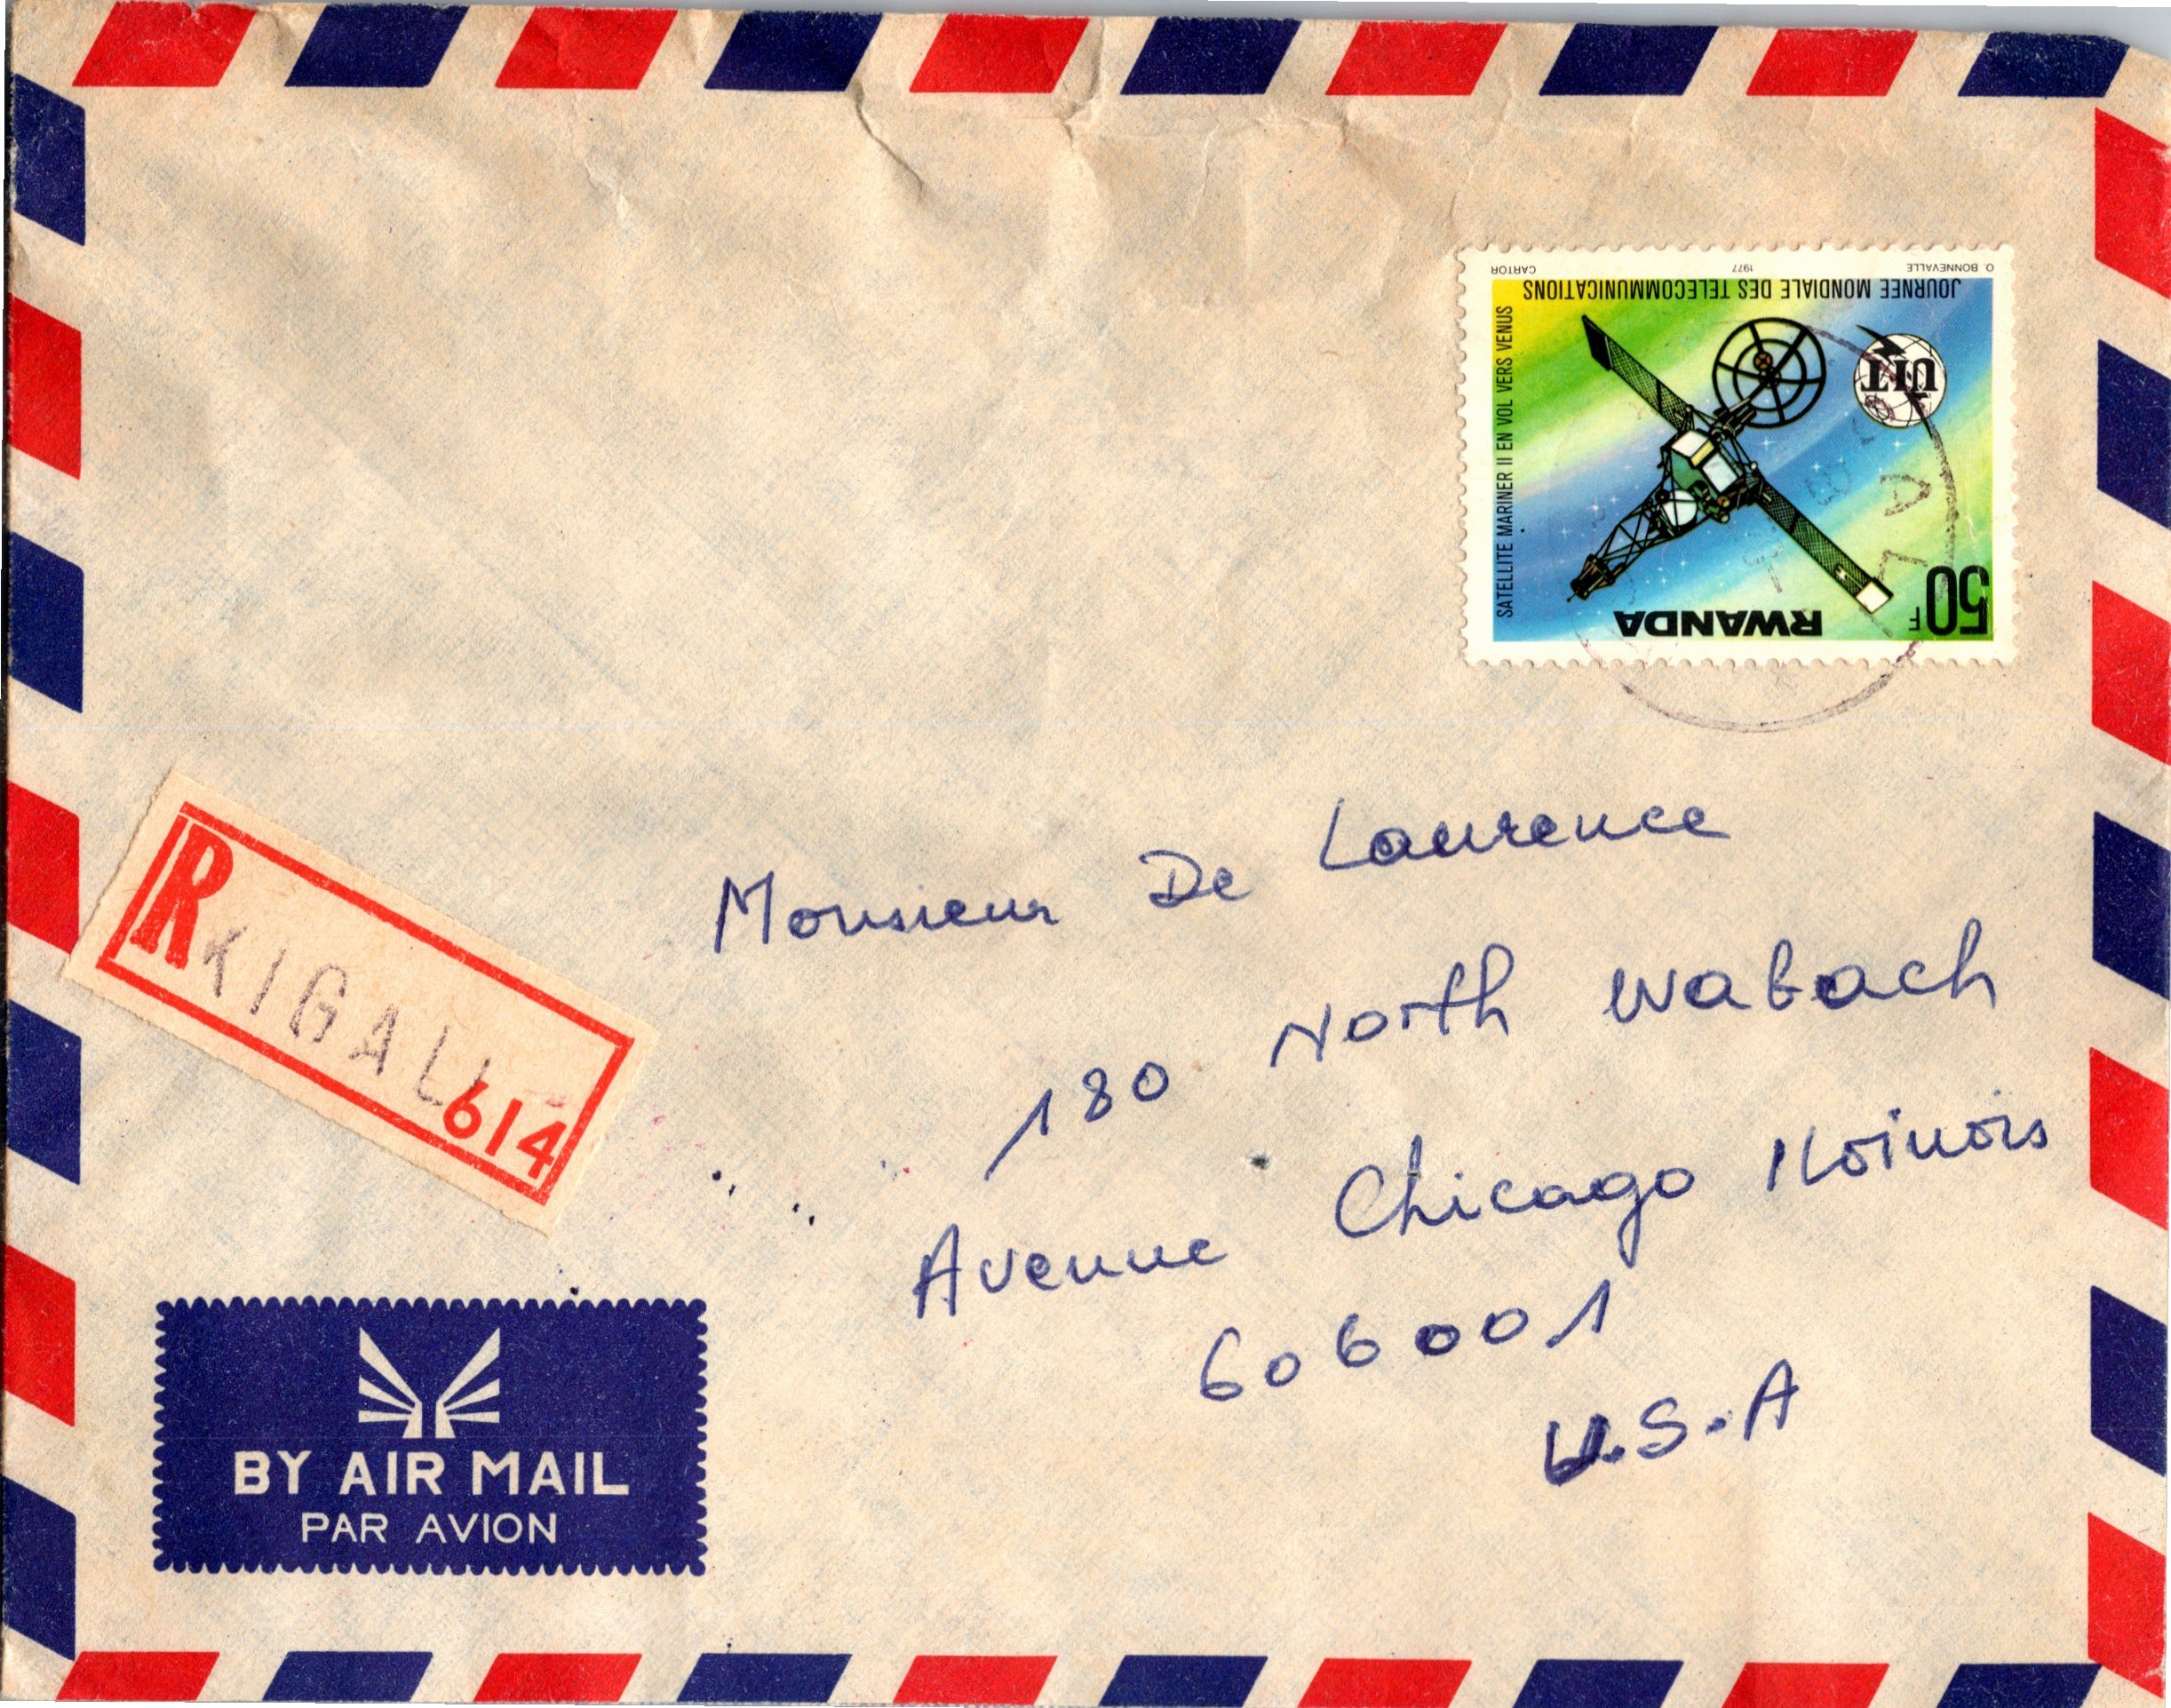 O. BONNEVALLE 1977 CARTOR
JOURNEE MONDIALE DES TELECOMMUNICATIONS
SATELLITE MARINER II EN VOL VERS VENUS
UIT
50F
RWANDA
Monsieur De Laurence
180 North Wabach
Avenue Chicago Iloinois
606001
U.S.A
R KIGALI
614
BY AIR MAIL
PAR AVION